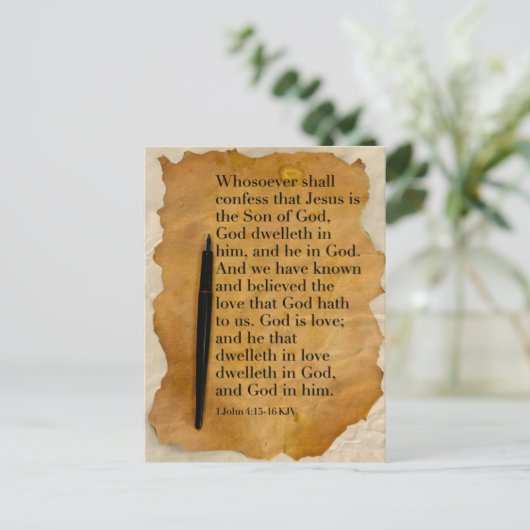 Whosoever shall
confess that Jesus is
the Son of God,
God dwelleth in
him, and he in God.
And we have known
and believed the
love that God hath
to us. God is love;
and he that
dwelleth in love
dwelleth in God,
and God in him.
1 John 4:15-16 KJV